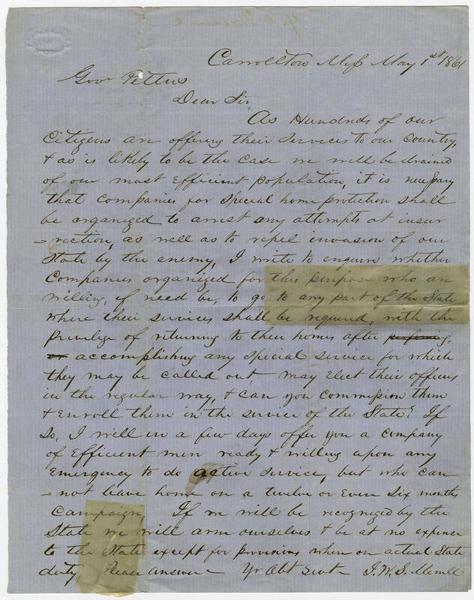 Carrollton Miss May 1st 1861
Gov Pettus
Dear Sir,
As Hundreds of our
Citizens are offering their services to our Country,
& as is likely to be the case we will be drained
of our most Efficient population, it is necessary
that companies for special home protection shall
be organized to arrest any attempts at insur
-rection, as well as to repel invasion of our
State by the enemy, I write to enquire whether
Companies organized for this purpose who are
willing, if need be, to go to any part of the State
where their services shall be required, with the
privilege of returning to their homes after
or accomplishing any special service for which
they may be called out may Elect their officers
in the regular way, & can you commission them
& Enroll them in the service of the State? If
So, I will in a few days offer you a company
of Efficient men ready & willing upon any
Emergency to do active service, but who can
-not leave home on a twelve or Even Six months
Campaign. If we will be recognized by the
State we will arm ourselves & be at no expense
to the State except for provisions when on actual State
duty Please answer Yr Obt Svnt J. W. S. Merrill